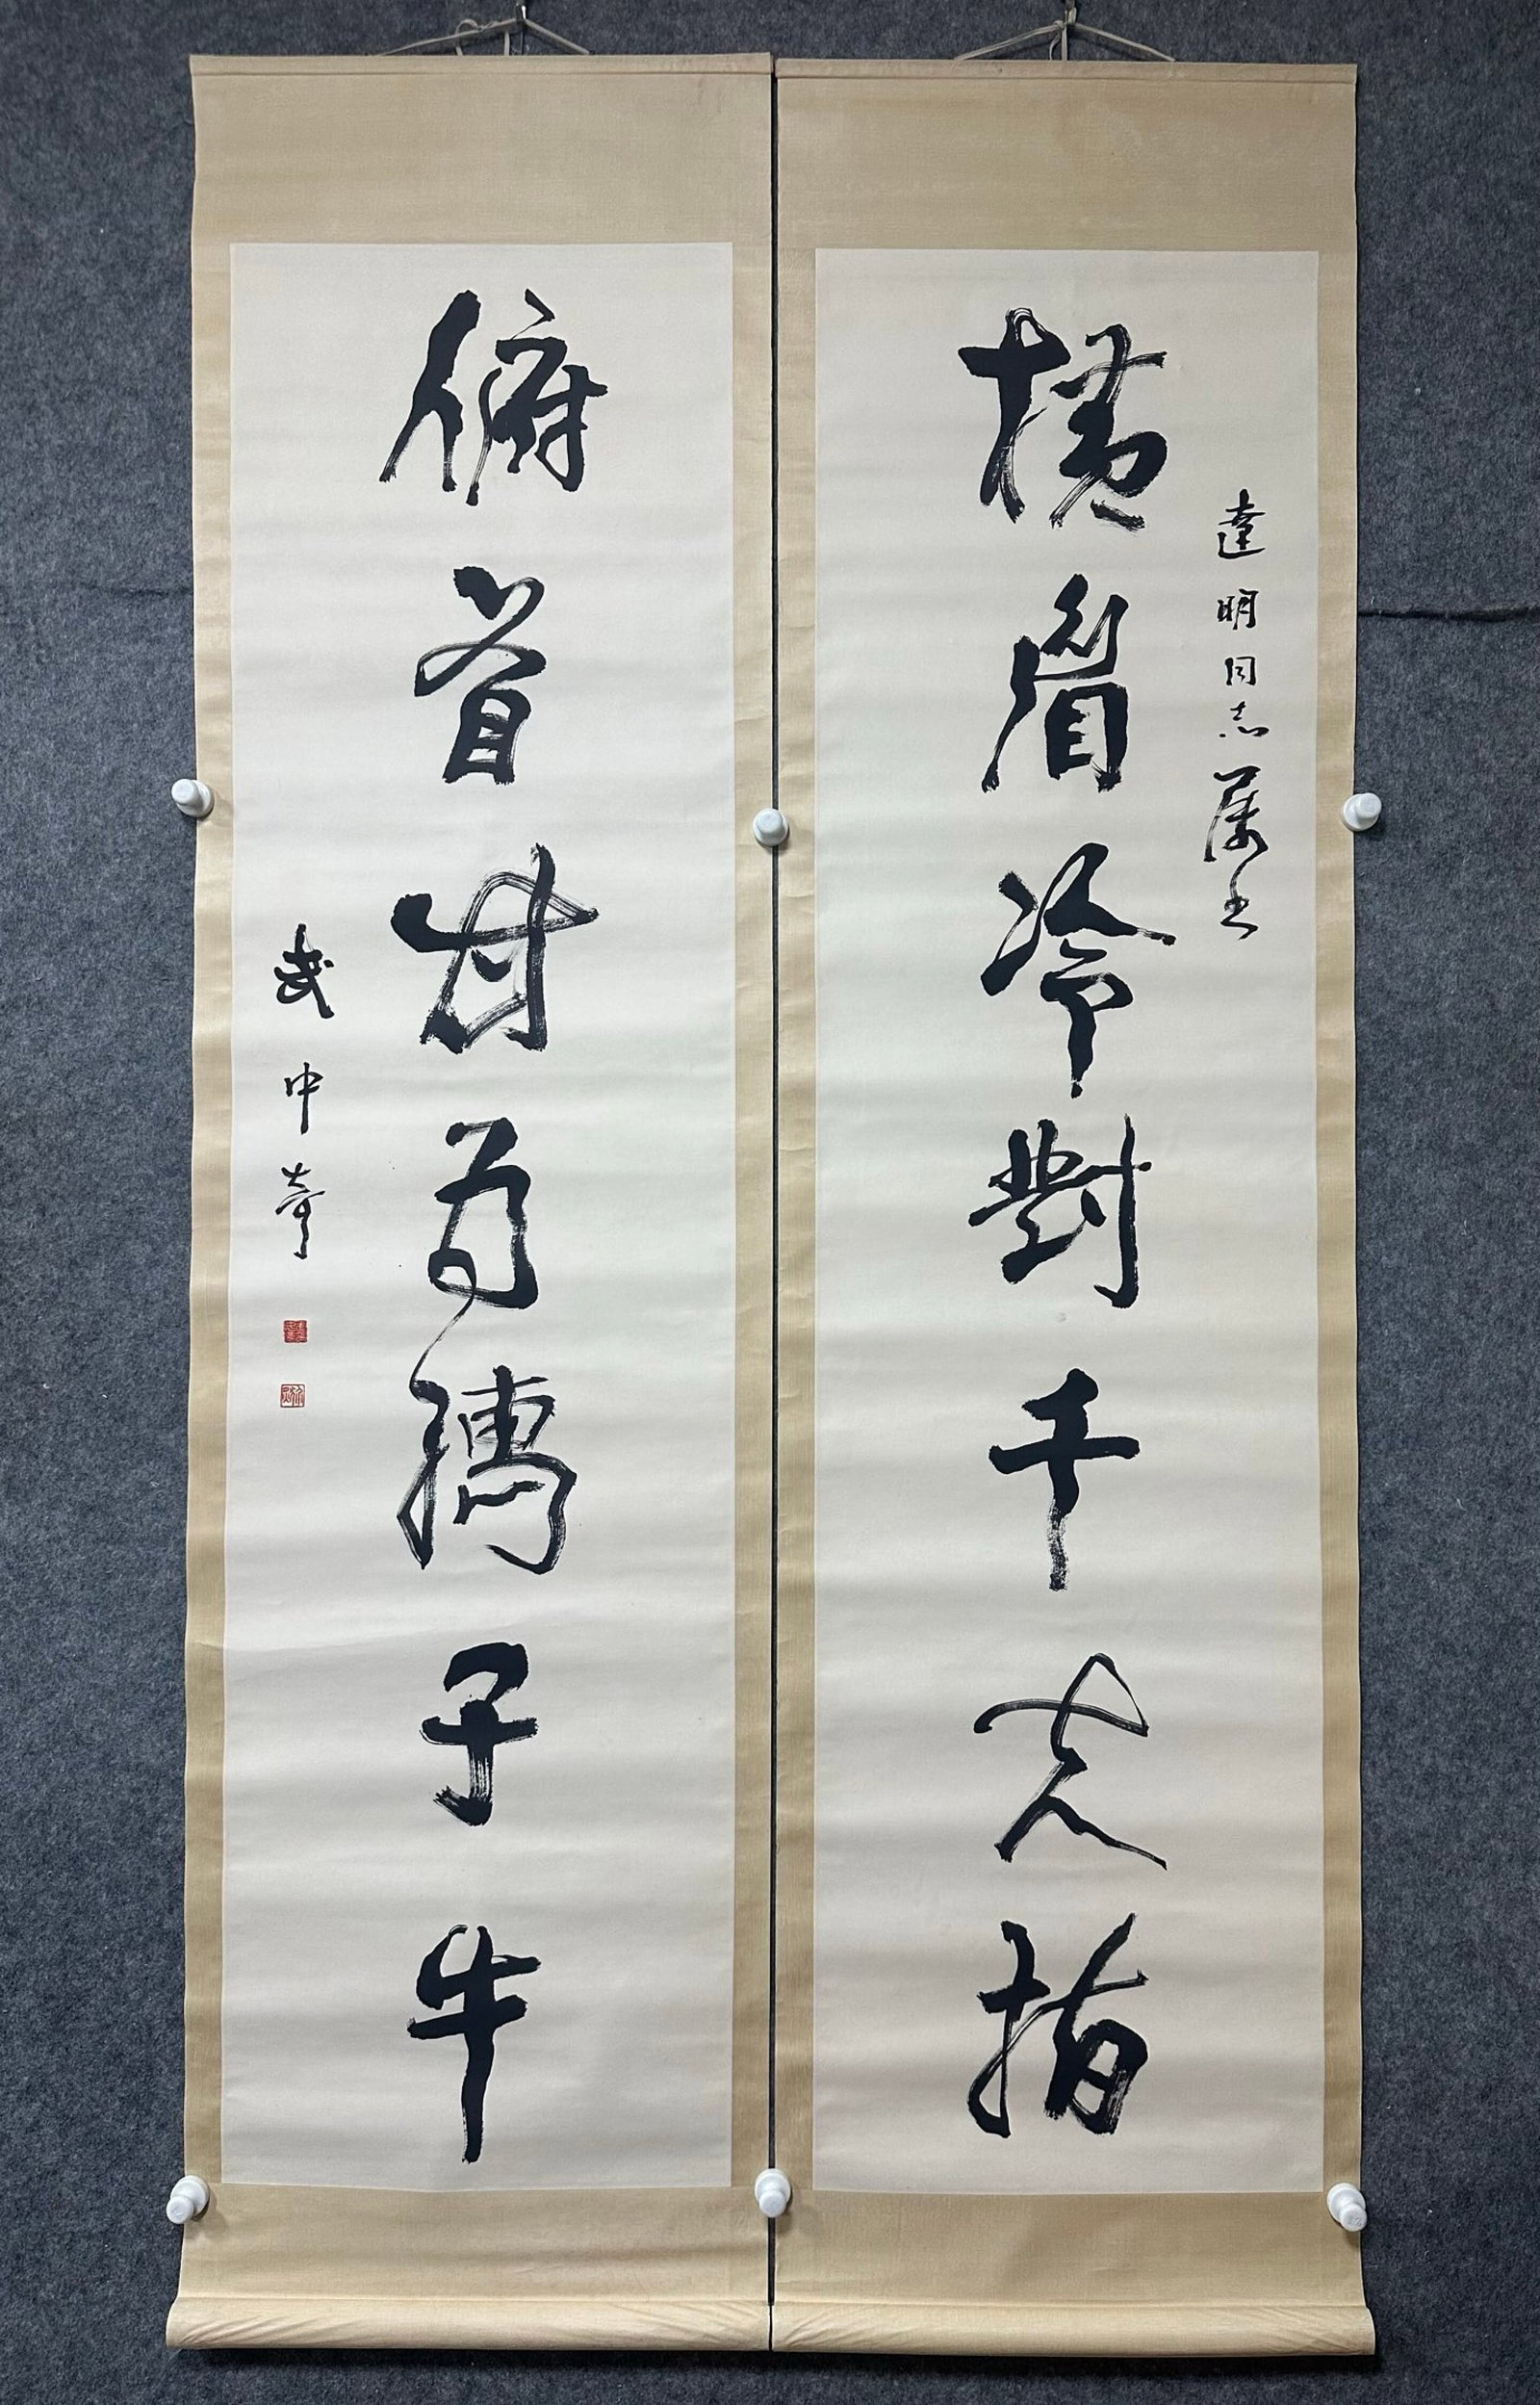 達明同志屬書
橫眉冷對千夫指
俯首甘為孺子牛
武中奇